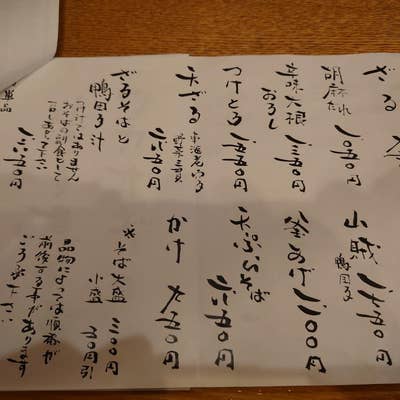 ざる
胡麻だれ 一、〇五〇円
辛味大根おろし 一、三五〇円
つけとろ 一、五五〇円
天ざる 車海老入る
野菜三品 二、六五〇円
ざるそばと
鴨団子汁
つけ汁ではありません
おそばの副食として
召しあがって下さい 一、六五〇円
単品
山賊 鴨団子 一、七五〇円
釜あげ 一、一〇〇円
天ぷらそば 二、六五〇円
かけ 九五〇円
※そば大盛 三〇〇円
小盛 五〇円引
品物によっては順番が
前後する事があります
ご了承ください